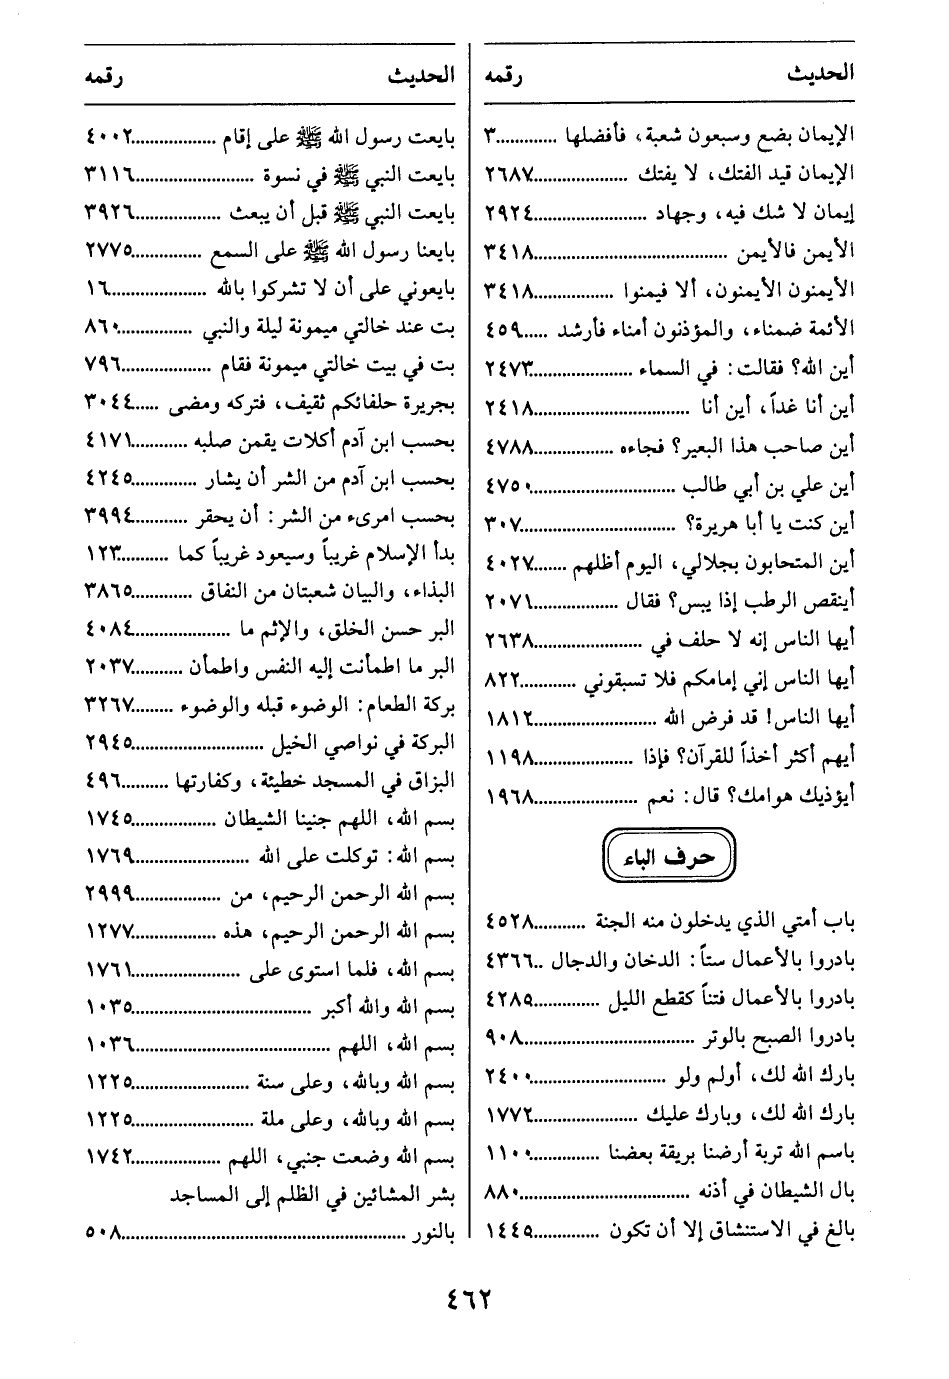 الحديث رقمه
الإيمان بضع وسبعون شعبة، فأفضلها .............٣
الإيمان قيد الفتك، لا يفتك ....................٢٦٨٧
إيمان لا شك فيه، وجهاد ........................٢٩٢٤
الأيمن فالأيمن .........................................٣٤١٨
الأيمنون الأيمنون، ألا فيمنوا .................٣٤١٨
الأئمة ضمناء، والمؤذنون أمناء فأرشد .....٤٥٩
أين الله؟ فقالت: في السماء .....................٢٤٧٣
أين أنا غداً، أين أنا .................................٢٤١٨
أين صاحب هذا البعير؟ فجاءه .................٤٧٨٨
أين علي بن أبي طالب ..............................٤٧٥٠
أين كنت يا أبا هريرة؟ ................................٣٠٧
أين المتحابون بجلالي، اليوم أظلهم .......٤٠٢٧
أينقص الرطب إذا يبس؟ فقال ..................٢٠٧١
أيها الناس إنه لا حلف في .......................٢٦٣٨
أيها الناس إني إمامكم فلا تسبقوني ............٨٢٢
أيها الناس! قد فرض الله ..........................١٨١٢
أيهم أكثر أخذاً للقرآن؟ فإذا .....................١١٩٨
أيؤذيك هوامك؟ قال: نعم ......................١٩٦٨
حرف الباء
باب أمتي الذي يدخلون منه الجنة ...........٤٥٢٨
بادروا بالأعمال ستاً: الدخان والدجال ..٤٣٦٦
بادروا بالأعمال فتناً كقطع الليل ..............٤٢٨٥
بادروا الصبح بالوتر ....................................٩٠٨
بارك الله لك، أولم ولو .............................٢٤٠٠
بارك الله لك، وبارك عليك ......................١٧٧٢
باسم الله تربة أرضنا بريقة بعضنا ...............١١٠٠
بال الشيطان في أذنه ....................................٨٨٠
بالغ في الاستنشاق إلا أن تكون ..............١٤٤٥
الحديث رقمه
بايعت رسول الله ﷺ على إقام ..................٤٠٠٢
بايعت النبي ﷺ في نسوة .........................٣١١٦
بايعت النبي ﷺ قبل أن يبعث ..................٣٩٢٦
بايعنا رسول الله ﷺ على السمع ...............٢٧٧٥
بايعوني على أن لا تشركوا بالله .....................١٦
بت عند خالتي ميمونة ليلة والنبي ................٨٦٠
بت في بيت خالتي ميمونة فقام ...................٧٩٦
بجريرة حلفائكم ثقيف، فتركه ومضى .....٣٠٤٤
بحسب ابن آدم أكلات يقمن صلبه ............٤١٧١
بحسب ابن آدم من الشر أن يشار ..............٤٢٤٥
بحسب امرىء من الشر: أن يحقر ............٣٩٩٤
بدأ الإسلام غريباً وسيعود غريباً كما ...........١٢٣
البذاء، والبيان شعبتان من النفاق .............٣٨٦٥
البر حسن الخلق، والإثم ما .....................٤٠٨٤
البر ما اطمأنت إليه النفس واطمأن ...........٢٠٣٧
بركة الطعام: الوضوء قبله والوضوء .........٣٢٦٧
البركة في نواصي الخيل ............................٢٩٤٥
البزاق في المسجد خطيئة، وكفارتها ..........٤٩٦
بسم الله، اللهم جنبنا الشيطان ..................١٧٤٥
بسم الله: توكلت على الله ........................١٧٦٩
بسم الله الرحمن الرحيم، من ...................٢٩٩٩
بسم الله الرحمن الرحيم، هذه ..................١٢٧٧
بسم الله، فلما استوى على .......................١٧٦١
بسم الله والله أكبر ......................................١٠٣٥
بسم الله، اللهم ..........................................١٠٣٦
بسم الله وبالله، وعلى سنة ........................١٢٢٥
بسم الله وبالله، وعلى ملة ..........................١٢٢٥
بسم الله وضعت جنبي، اللهم ...................١٧٤٢
بشر المشائين في الظلم إلى المساجد
بالنور ............................................................٥٠٨
٤٦٢